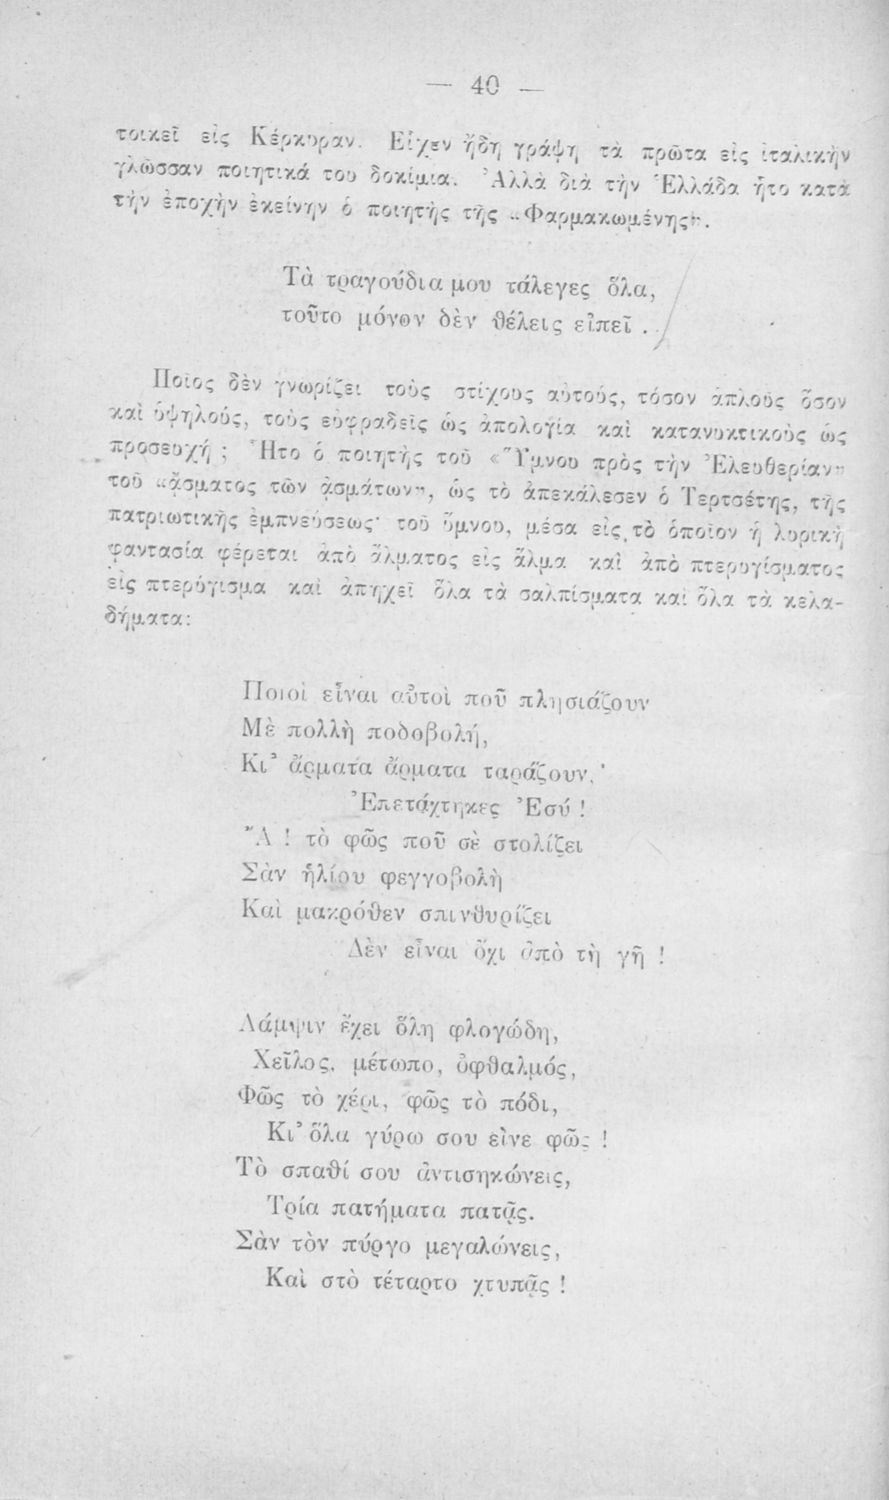 — 40 —
τοικεῖ εἰς Κέρκυραν. Εἶχεν ἤδη γράψη τὰ πρῶτα εἰς ἰταλικὴν
γλῶσσαν ποιητικά του δοκίμια. Ἀλλὰ διὰ τὴν Ἑλλάδα ἦτο κατὰ
τὴν ἐποχὴν ἐκείνην ὁ ποιητὴς τῆς «Φαρμακωμένης».
Τὰ τραγούδια μου τάλεγες ὅλα,
τοῦτο μόνον δὲν θέλεις εἰπεῖ .
Ποῖος δὲν γνωρίζει τοὺς στίχους αὐτούς, τόσον ἁπλοῦς ὅσον
καὶ ὑψηλούς, τοὺς εὐφραδεῖς ὡς ἀπολογία καὶ κατανυκτικοὺς ὡς
προσευχή ; Ἦτο ὁ ποιητὴς τοῦ «Ὕμνου πρὸς τὴν Ἐλευθερίαν»
τοῦ «ᾄσματος τῶν ᾀσμάτων», ὡς τὸ ἀπεκάλεσεν ὁ Τερτσέτης, τῆς
πατριωτικῆς ἐμπνεύσεως· τοῦ ὕμνου, μέσα εἰς τὸ ὁποῖον ἡ λυρικὴ
φαντασία φέρεται ἀπὸ ἅλματος εἰς ἅλμα καὶ ἀπὸ πτερυγίσματος
εἰς πτερύγισμα καὶ ἀπηχεῖ ὅλα τὰ σαλπίσματα καὶ ὅλα τὰ κελα-
δήματα:
Ποιοὶ εἶναι αὐτοὶ ποῦ πλησιάζουν
Μὲ πολλὴ ποδοβολή,
Κι' ἄρματα ἄρματα ταράζουν,
Ἐπετάχτηκες Ἐσύ !
Ἄ ! τὸ φῶς ποῦ σὲ στολίζει
Σὰν ἡλίου φεγγοβολὴ
Καὶ μακρόθεν σπινθυρίζει
Δὲν εἶναι ὄχι ἀπὸ τὴ γῆ !
Λάμψιν ἔχει ὅλη φλογώδη,
Χεῖλος, μέτωπο, ὀφθαλμός,
Φῶς τὸ χέρι, φῶς τὸ πόδι,
Κι' ὅλα γύρω σου εἶνε φῶς !
Τὸ σπαθί σου ἀντισηκώνεις,
Τρία πατήματα πατᾷς.
Σὰν τὸν πύργο μεγαλώνεις,
Καὶ στὸ τέταρτο χτυπᾷς !